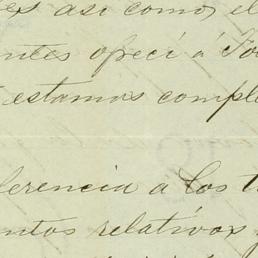 es así como el
ntes ofrecí á
estamos compl
ferencia a los t
ntos relativos